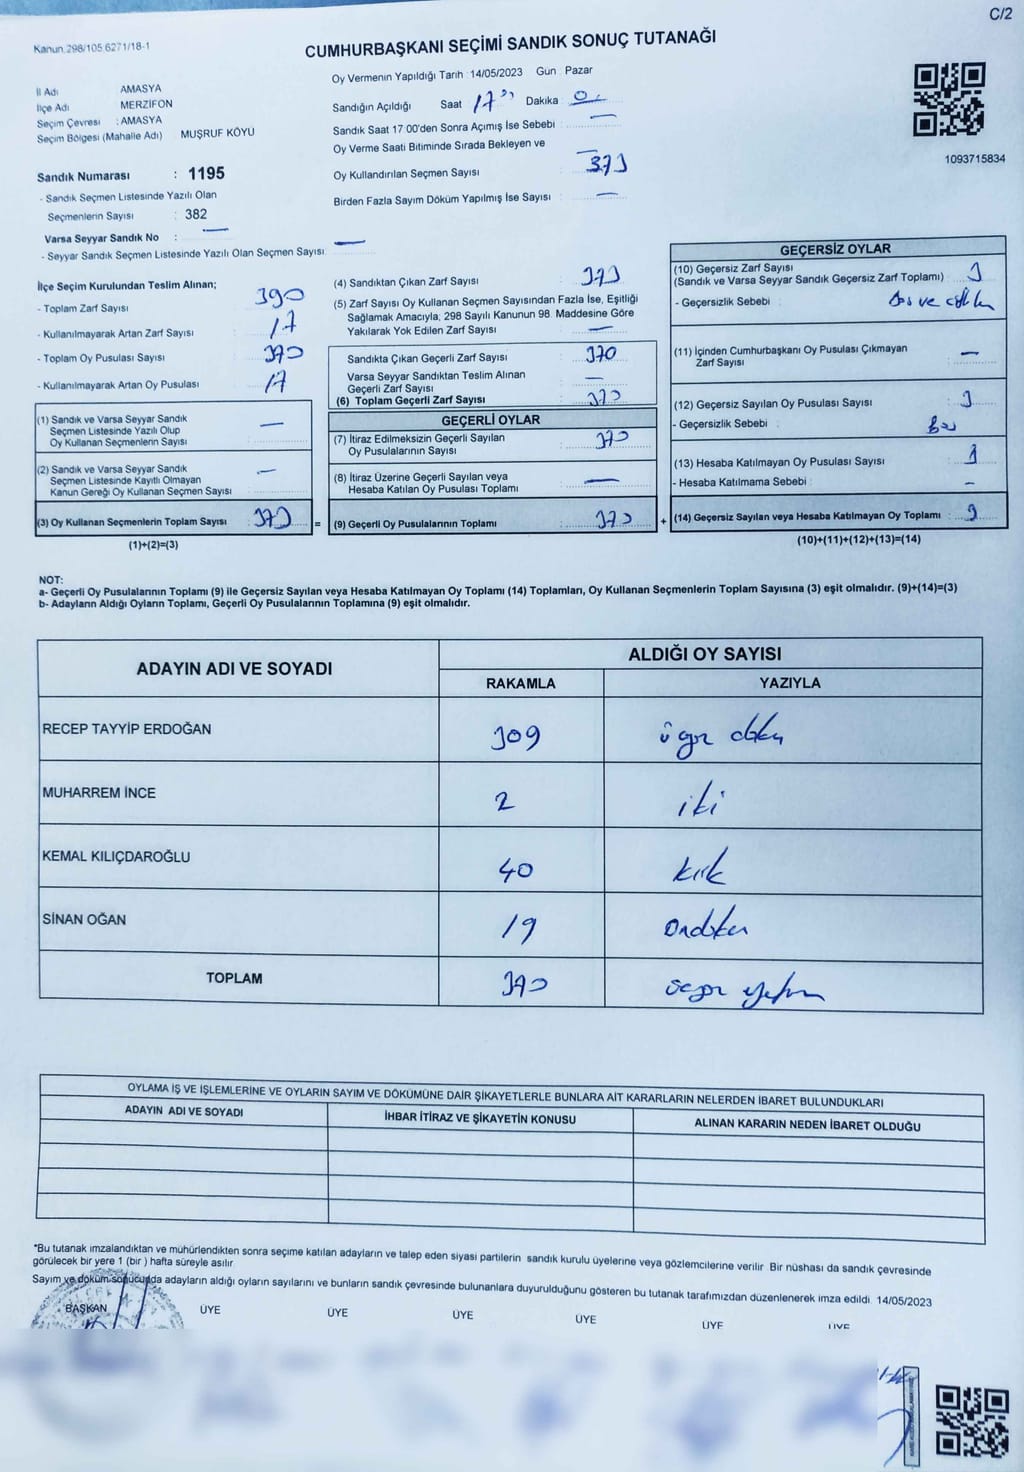 C/2
Kanun:298/105.6271/18-1
CUMHURBAŞKANI SEÇİMİ SANDIK SONUÇ TUTANAĞI
İl Adı AMASYA
İlçe Adı MERZİFON
Seçim Çevresi : AMASYA
Seçim Bölgesi (Mahalle Adı) MUŞRUF KÖYÜ
Sandık Numarası : 1195
- Sandık Seçmen Listesinde Yazılı Olan
Seçmenlerin Sayısı : 382
Varsa Seyyar Sandık No : —
- Seyyar Sandık Seçmen Listesinde Yazılı Olan Seçmen Sayısı —
Oy Vermenin Yapıldığı Tarih : 14/05/2023 Gün : Pazar
Sandığın Açıldığı Saat 17 Dakika
Sandık Saat 17:00'den Sonra Açımış İse Sebebi : —
Oy Verme Saati Bitiminde Sırada Bekleyen ve
Oy Kullandırılan Seçmen Sayısı —
Birden Fazla Sayım Döküm Yapılmış İse Sayısı : —
1093715834
İlçe Seçim Kurulundan Teslim Alınan;
- Toplam Zarf Sayısı : 390
- Kullanılmayarak Artan Zarf Sayısı : 17
- Toplam Oy Pusulası Sayısı :
- Kullanılmayarak Artan Oy Pusulası : 17
(1) Sandık ve Varsa Seyyar Sandık
Seçmen Listesinde Yazılı Olup
Oy Kullanan Seçmenlerin Sayısı —
(2) Sandık ve Varsa Seyyar Sandık
Seçmen Listesinde Kayıtlı Olmayan
Kanun Gereği Oy Kullanan Seçmen Sayısı —
(3) Oy Kullanan Seçmenlerin Toplam Sayısı 373 =
(1)+(2)=(3)
(4) Sandıktan Çıkan Zarf Sayısı : 373
(5) Zarf Sayısı Oy Kullanan Seçmen Sayısından Fazla İse, Eşitliği
Sağlamak Amacıyla; 298 Sayılı Kanunun 98. Maddesine Göre
Yakılarak Yok Edilen Zarf Sayısı : —
Sandıkta Çıkan Geçerli Zarf Sayısı : 370
Varsa Seyyar Sandıktan Teslim Alınan
Geçerli Zarf Sayısı —
(6) Toplam Geçerli Zarf Sayısı : 370
GEÇERLİ OYLAR
(7) İtiraz Edilmeksizin Geçerli Sayılan
Oy Pusulalarının Sayısı : 370
(8) İtiraz Üzerine Geçerli Sayılan veya
Hesaba Katılan Oy Pusulası Toplamı : —
(9) Geçerli Oy Pusulalarının Toplamı : 370 +
GEÇERSİZ OYLAR
(10) Geçersiz Zarf Sayısı
(Sandık ve Varsa Seyyar Sandık Geçersiz Zarf Toplamı) :
- Geçersizlik Sebebi : ve
(11) İçinden Cumhurbaşkanı Oy Pusulası Çıkmayan
Zarf Sayısı : —
(12) Geçersiz Sayılan Oy Pusulası Sayısı :
- Geçersizlik Sebebi :
(13) Hesaba Katılmayan Oy Pusulası Sayısı :
- Hesaba Katılmama Sebebi : -
(14) Geçersiz Sayılan veya Hesaba Katılmayan Oy Toplamı :
(10)+(11)+(12)+(13)=(14)
NOT:
a- Geçerli Oy Pusulalarının Toplamı (9) ile Geçersiz Sayılan veya Hesaba Katılmayan Oy Toplamı (14) Toplamları, Oy Kullanan Seçmenlerin Toplam Sayısına (3) eşit olmalıdır. (9)+(14)=(3)
b- Adayların Aldığı Oyların Toplamı, Geçerli Oy Pusulalarının Toplamına (9) eşit olmalıdır.
ADAYIN ADI VE SOYADI
ALDIĞI OY SAYISI
RAKAMLA YAZIYLA
RECEP TAYYİP ERDOĞAN 309 üçyüz dokuz
MUHARREM İNCE 2 iki
KEMAL KILIÇDAROĞLU 40 kırk
SİNAN OĞAN 19 Ondokuz
TOPLAM 370 üçyüz yetmiş
OYLAMA İŞ VE İŞLEMLERİNE VE OYLARIN SAYIM VE DÖKÜMÜNE DAİR ŞİKAYETLERLE BUNLARA AİT KARARLARIN NELERDEN İBARET BULUNDUKLARI
ADAYIN ADI VE SOYADI İHBAR İTİRAZ VE ŞİKAYETİN KONUSU ALINAN KARARIN NEDEN İBARET OLDUĞU
*Bu tutanak imzalandıktan ve mühürlendikten sonra seçime katılan adayların ve talep eden siyasi partilerin sandık kurulu üyelerine veya gözlemcilerine verilir. Bir nüshası da sandık çevresinde
görülecek bir yere 1 (bir ) hafta süreyle asılır.
Sayım ve döküm sonucunda adayların aldığı oyların sayılarını ve bunların sandık çevresinde bulunanlara duyurulduğunu gösteren bu tutanak tarafımızdan düzenlenerek imza edildi. 14/05/2023
BAŞKAN ÜYE ÜYE ÜYE ÜYE ÜYE ÜYE